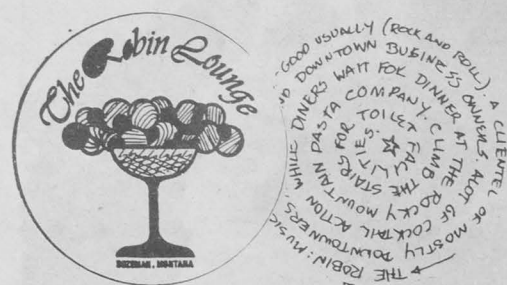 The Robin Lounge
BOZEMAN, MONTANA
THE ROBIN: MUSIC
GOOD USUALLY (ROCK AND ROLL). A CLIENTEL OF MOSTLY DOWNTOWNERS
DOWNTOWN BUSINESS OWNERS. ALOT OF COCKTAIL ACTION WHILE DINERS WAIT FOR DINNER AT THE ROCKY MOUNTAIN PASTA COMPANY. CLIMB THE STAIRS FOR TOILET FACILITIES.